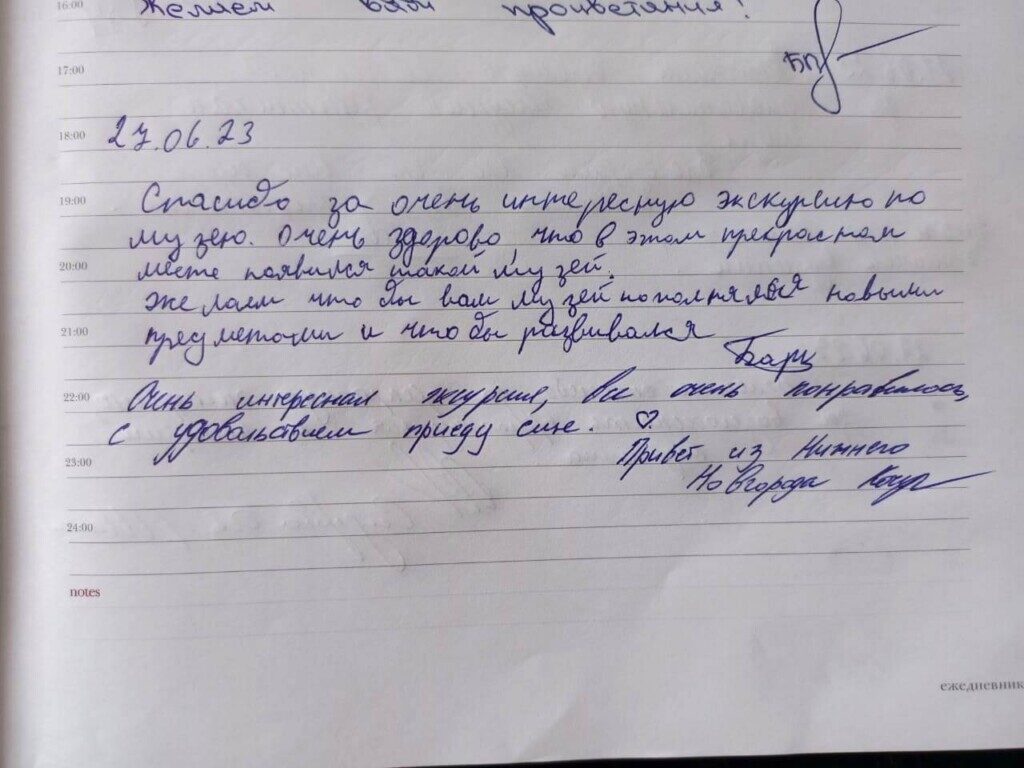 16:00 Желаем вам процветания!
17:00 БП
18:00 27.06.23
19:00 Спасибо за очень интересную экскурсию по
музею. Очень здорово, что в этом прекрасном
20:00 месте появился такой музей.
Желаем что бы вам музей пополнялся новыми
21:00 предметами и что бы развивался
Барц
22:00 Очень интересная экурсия, все очень понравилось,
с удовольствием приеду еще. ♡
23:00 Привет из Нижнего
Новгорода
24:00
notes
ежедневник